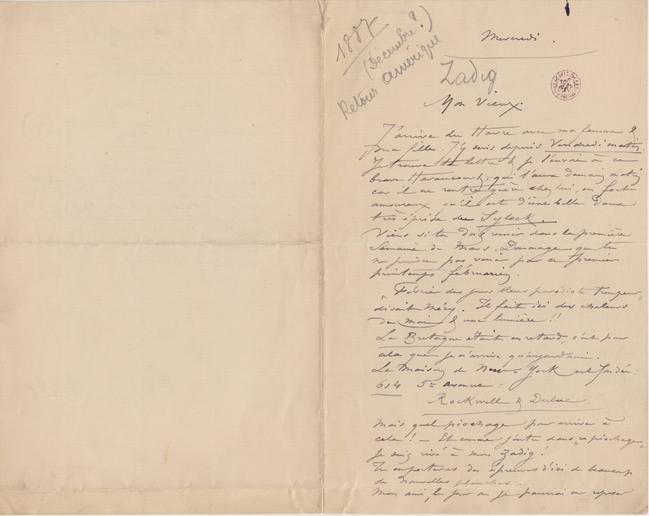 1887
(Décembre?)
Retour Amérique
Mercredi.
Zadig
Mon Vieux.
J'arrive du Havre avec ma femme &
ma fille. J'y suis depuis Vendredi matin
Je trouve ta lettre & je l'envoie à ce
brave Haraucourt, qui l'aura demain matin
car il ne rentre guère chez lui, en fort
amoureux qu'il est d'une belle dame
très éprise de Sylock
Viens si tu dois venir dans la première
semaine de Mars. Dommage que tu
ne puisse pas venir par ce premier
printemps février
Février des jours bleus parodiste trompeur
disait Méry. Il fait ici des chaleurs
de mai & une lumière!!
La Bretagne était en retard, c'est par
cela que je n'arrive qu'aujourd'hui.
La Maison de New-York est fondée:
614 5e avenue:
Rockwell &
Mais quel piochage pour arriver à
cela!! - Et comme dans "ce piochage"
je suis rivé à mon Zadig!
Tu emporteras des épreuves d'ici de beaucoup
de nouvelles planches.
Mon ami, le jour où je pourrai me reposer